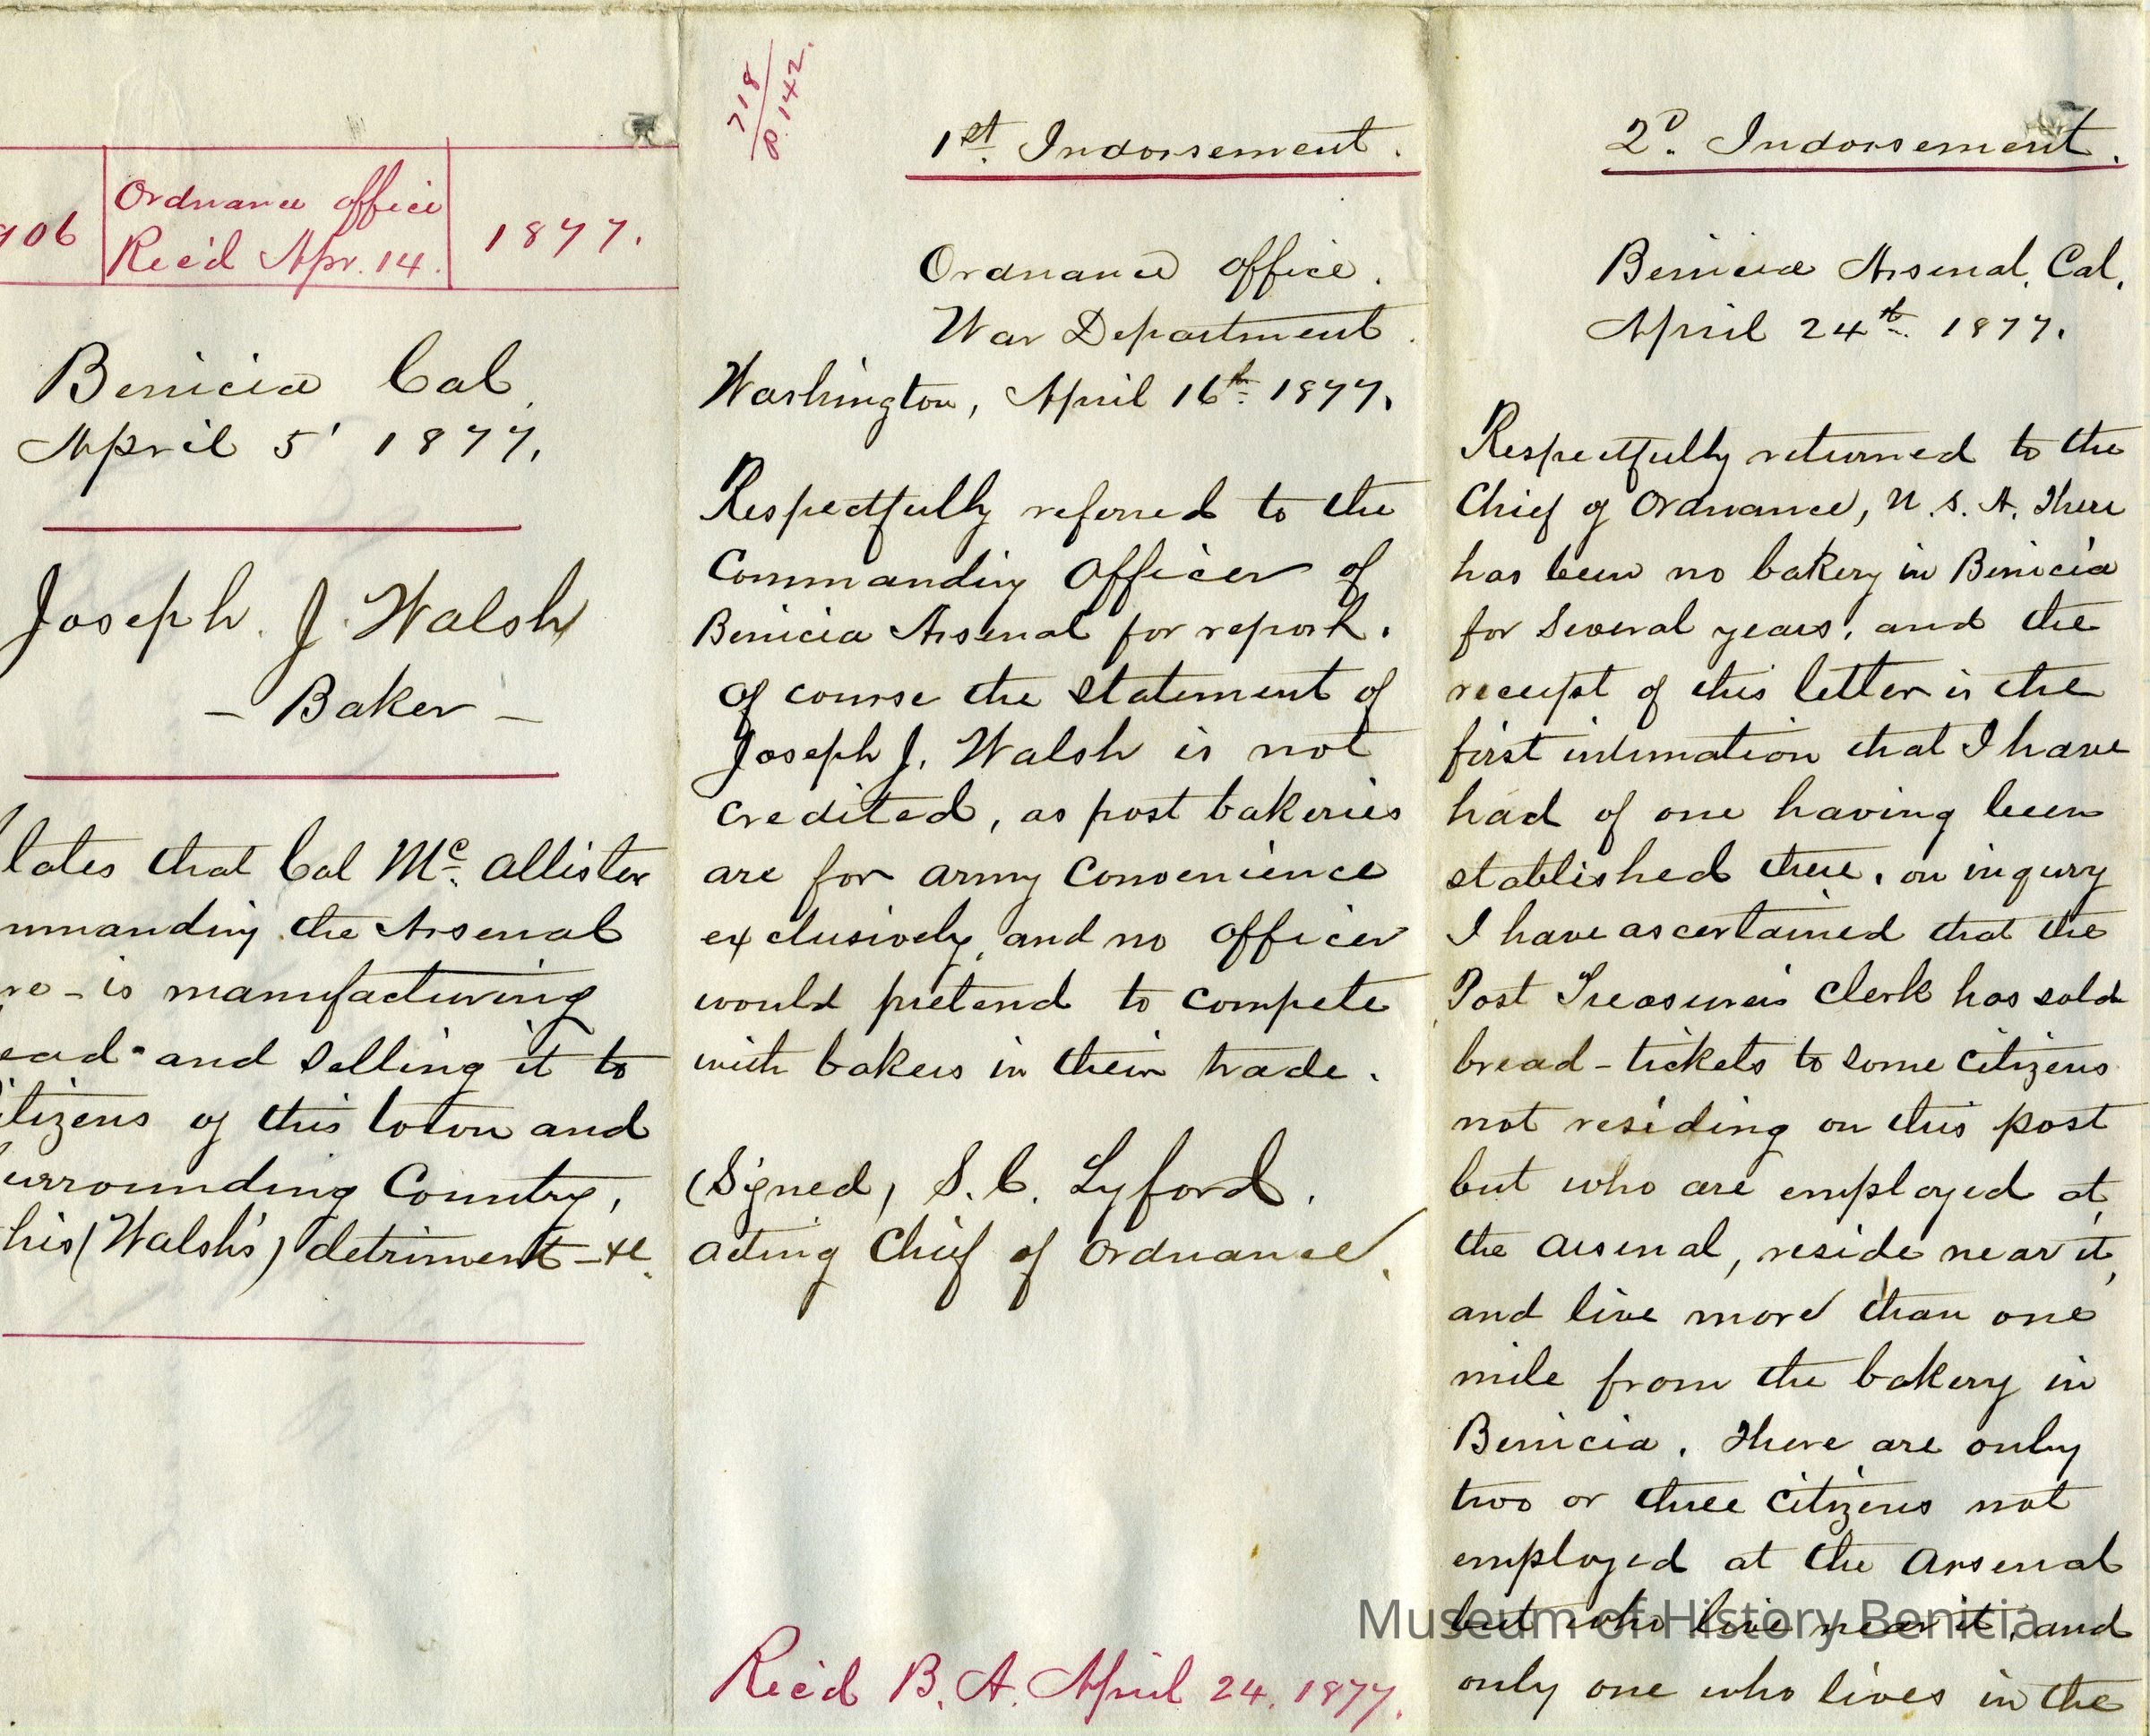 906
Ordnance office
Rec'd Apr. 14.
1877.
Benicia Cal.
April 5' 1877.
Joseph. J. Walsh
- Baker -
lates that Col Mc. Allister
mmanding the Arsenal
re - is manufacturing
ead - and Selling it to
itizens of this town and
urrounding Country,
his (Walsh's) detriment - &c.
718
P. 142.
1st. Indorsement.
Ordnance office.
War Department.
Washington, April 16th. 1877.
Respectfully referred to the
Commanding Officer of
Benicia Arsenal for report.
Of course the Statement of
Joseph J. Walsh is not
credited, as post bakeries
are for army Convenience
exclusively, and no Officer
would pretend to compete
with bakers in their trade.
(Signed, S. C. Lyford.
Acting Chief of Ordnance.
Rec'd B. A. April 24. 1877.
2D. Indorsement.
Benicia Arsenal, Cal,
April 24th. 1877.
Respectfully returned to the
Chief of Ordnance, U. S. A. There
has been no bakery in Benicia
for Several years, and the
receipt of this letter is the
first intimation that I have
had of one having been
established there. on inqury
I have ascertained that the
Post Treasurer's Clerk has sold
bread - tickets to some Citizens
not residing on this post
but who are employed at
the Arsenal, reside near it,
and live more than one
mile from the bakery in
Benicia. There are only
two or three Citizens not
employed at the Arsenal
but who live near it, and
only one who lives in the
Museum of History Benicia